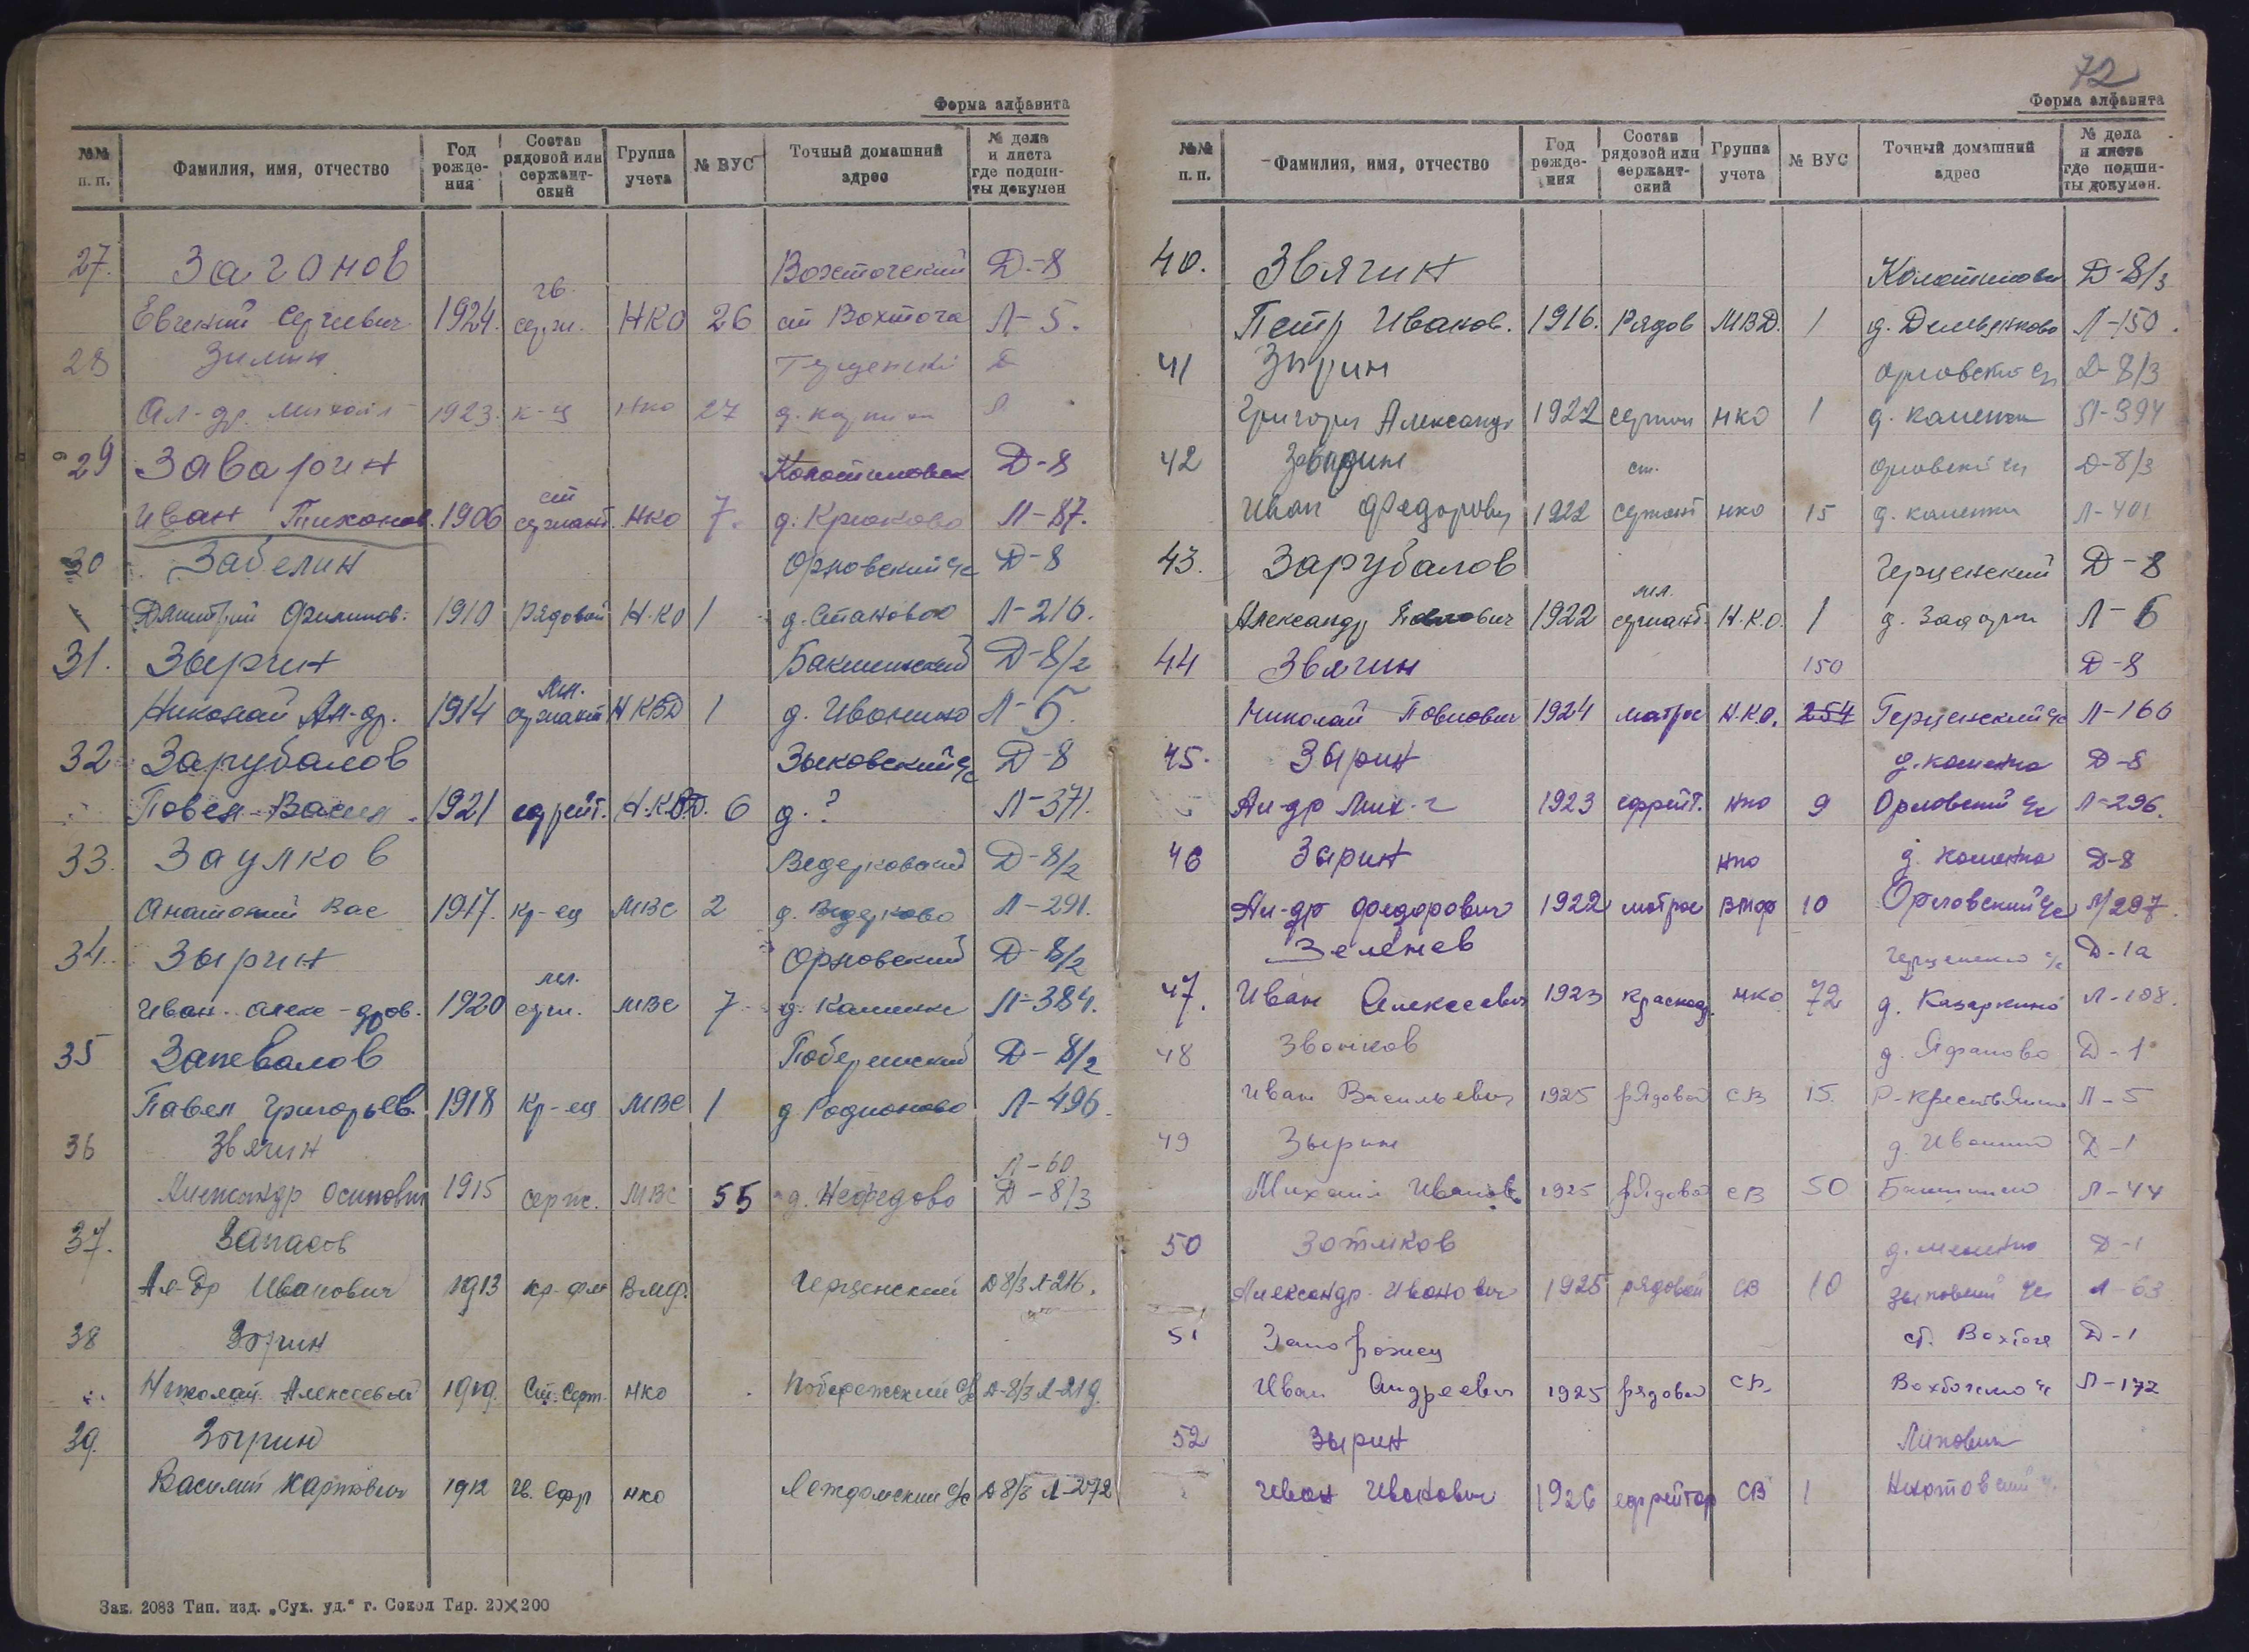 Форма алфавита
№№ п. п. Фамилия, имя, отчество Год рожде- ния Состав рядовой или сержант- ский Группа учета № ВУС Точный домашний адрес № дела и листа где подши- ты докумен
27. Заганов Вохтогский Д-8
Евгений Сергиевич 1924. гв. серж. НКО 26 ст Вохтога Л-5.
28 Зимин Д
Ал-др. Михайл 1923. к-ц НКО 27 Л
29 Заварин Колотиловск Д-8
Иван Тихонов. 1906 ст сержант. НКО 7. д. Крюково Л-87.
30 Забелин Орловский с/с Д-8
Дмитрий Филипов. 1910 Рядовой Н.КО 1 д. Становое Л-216.
31. Зырин Бакшинский Д-8/2
Николай Ал-др. 1914 мл. сержант НКВД 1 д. Иванино Л-5.
32 Зарубалов Зыковский с/с Д-8
Повел Васил. 1921 ефрейт. 6 д. ? Л-371.
33. Заулков Ведерковский Д-8/2
Анатолий Вас 1917. кр-ец МВС 2 д. Ведерково Л-291.
34. Зырин Орловский Д-8/2
Иван алекс-дров. 1920 мл. серж. МВС 7 д. Каменка Л-384.
35 Запевалов Побережский Д-8/2
Павел Григорьев. 1918 Кр-ец МВС 1 д Родионово Л-496.
36 Звягин Л-60
Александр Осипович 1915 серж. МВС 55 д. Нефедово Д-8/3
37. Запасов
Ал-др Иванович 1913 кр-фл В.М.Ф. Герценский Д 8/3 Л-216.
38 Зырин
Николай Алексеевич 1919. Ст. Серж. НКО Побережский с/с Д-8/3 Л-219.
39. Зырин
Василий Карпович 1912 Гв. Ефр НКО Леждомский с/с Д 8/3 Л-272
Зак. 2083 Тип. изд. „Сух. уд." г. Сокол Тир. 20×200
72
Форма алфавита
№№ п. п. Фамилия, имя, отчество Год рожде- ния Состав рядовой или сержант- ский Группа учета № ВУС Точный домашний адрес № дела и листа где подши- ты докумен.
40. Звягин Колотиловск Д-8/3
Петр Иванов. 1916. Рядов МВД. 1 Л-150.
41 Зырин Орловский с/с Д-8/3
Григорий Александр 1922 сержан НКО 1 д. каменка Л-394
42 орловский с/с Д-8/3
Иван Федорович 1922 ст. сержант НКО 15 д. каменка Л-401
43. Зарубалов Герценский Д-8
Александр Павлович 1922 мл. сержант. Н.К.О. 1 Л-6
44 Звягин 150 Д-8
Николай Повлович 1924 матрос Н.К.О. 254 Герценский с/с Л-166
45. Зырин д. каменка Д-8
Ал-др Мих-ч 1923 ефрейт. НКО 9 Орловский с/с Л-296.
46 Зырин НКО д. каменка Д-8
Ал-др Федорович 1922 матрос ВМФ 10 Орловский с/с Л/297.
Зеленев Герценский с/с Д-1а
47. Иван Алексеевич 1923 красноар. НКО 72 д. Казаркино Л-108.
48 Звонков д. Яфаново Д-1
Иван Васильевич 1925 рядовой СВ 15. Р-Крестьянск Л-5
49 Зырин д. Иванино Д-1
Михаил Иванов. 1925 рядовой СВ 50 Л-44
50 Зотиков Д-1
Александр Иванович 1925 рядовой СВ 10 Зыковский с/с Л-63
51 Запорожец ст. Вохтога Д-1
Иван Андреевич 1925 рядовой СВ Л-172
52 Зырин
Иван Иванович 1926 ефрейтор СВ 1